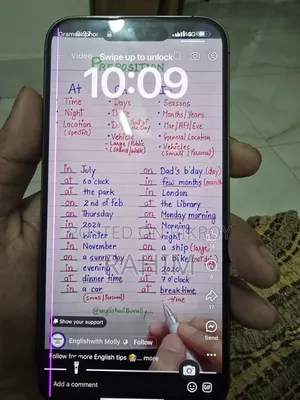 4G
Video
Swipe up to unlock
PREPOSITION
10:09
At
Time
Night
Location
(specific)
• Days
• Vehicle
Large/Public
• Seasons
• Months/Years
• Mor/Aft/Eve
• General Location
• Vehicles
(Small/Personal)
in July
on Dad's b'day (day)
at 6 o'clock
in few months (month)
at the park
in London
on 2nd of feb
at the Library
on Thursday
on Monday morning
in 2024
in Morning
in winter
at night
in November
on a ship (large)
on a sunny day
on a bike
in evening
in 2020
at dinner time
at 7 o'clock
in a car
at break time
(Small/Personal)
time
RAHIM
@englishwithmolly
Show your support
17
Send
Englishwith Molly
Public
Follow for more English tips
... more
Add a comment
GIF